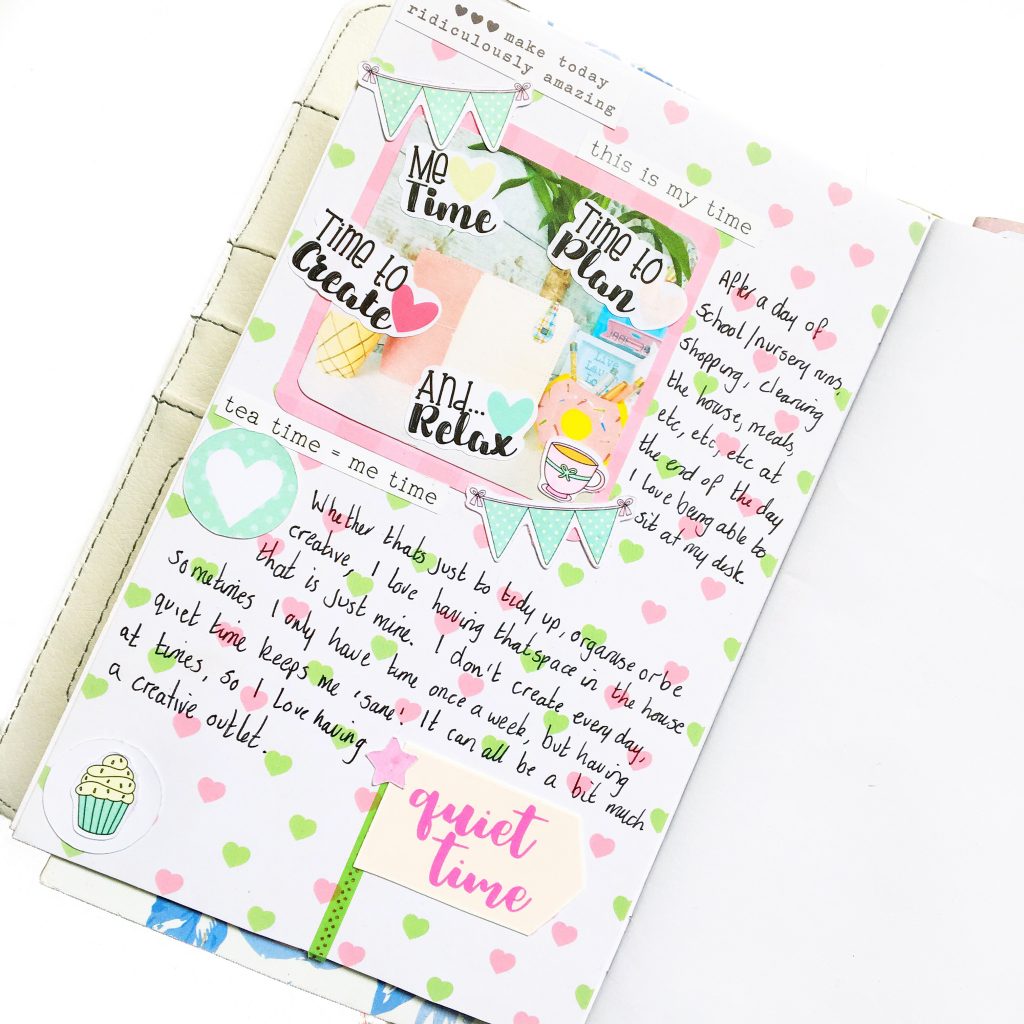 ♥♥♥ make today
ridiculously amazing
this is my time
Me
Time
Time to
Plan
Time to
Create
And...
Relax
Live
After a day of
school/nursery runs,
shopping, cleaning
the house, meals,
etc, etc, etc at
the end of the day
I love being able to
sit at my desk.
tea time = me time
Whether thats just to tidy up, organise or be
creative, I love having that space in the house
that is just mine. I don't create every day,
sometimes I only have time once a week, but having
quiet time keeps me 'sane'. It can all be a bit much
at times, so I love having
a creative outlet.
quiet
time